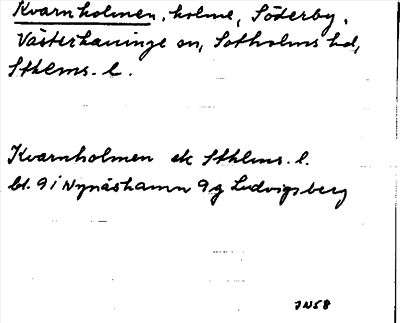 Kvarnholmen, holme, Söderby,
Västerhaninge sn, Sotholms hd,
Sthlms. l.
Kvarnholmen ek Sthlms. l.
bl. 9 i Nynäshamn 9 g Ludvigsberg
JN58